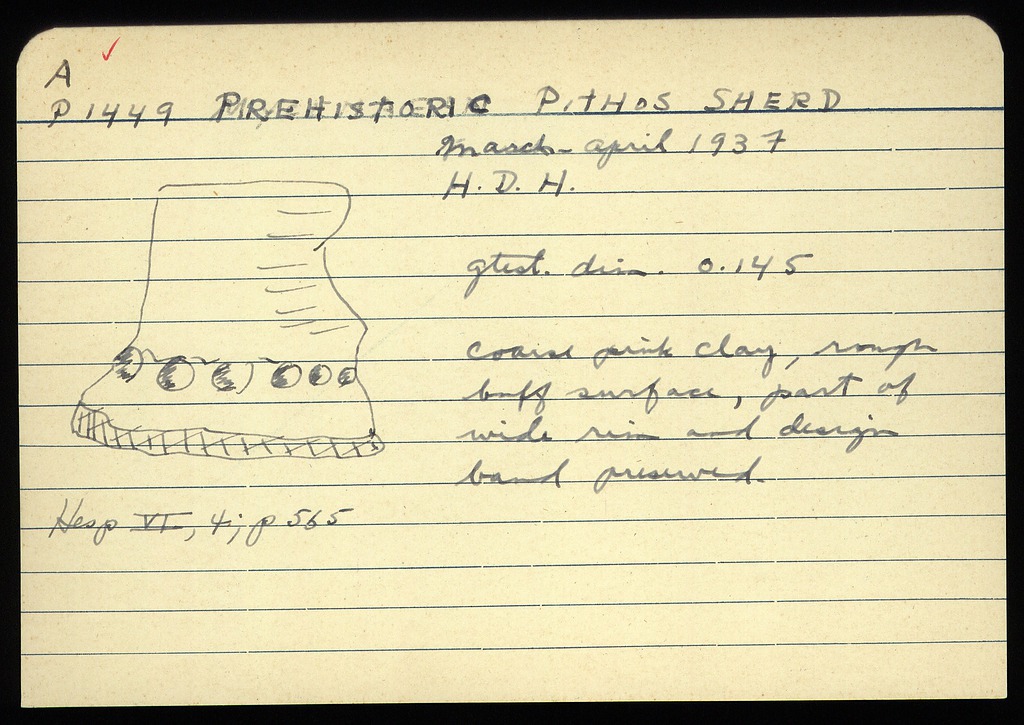 A
P 1449 PREHISTORIC PITHOS SHERD
March-april 1937
H. D. H.
gtest. dim. 0.145
coarse pink clay, rough
buff surface, part of
wide rim and design
band preserved.
Hesp VI, 4; p 565